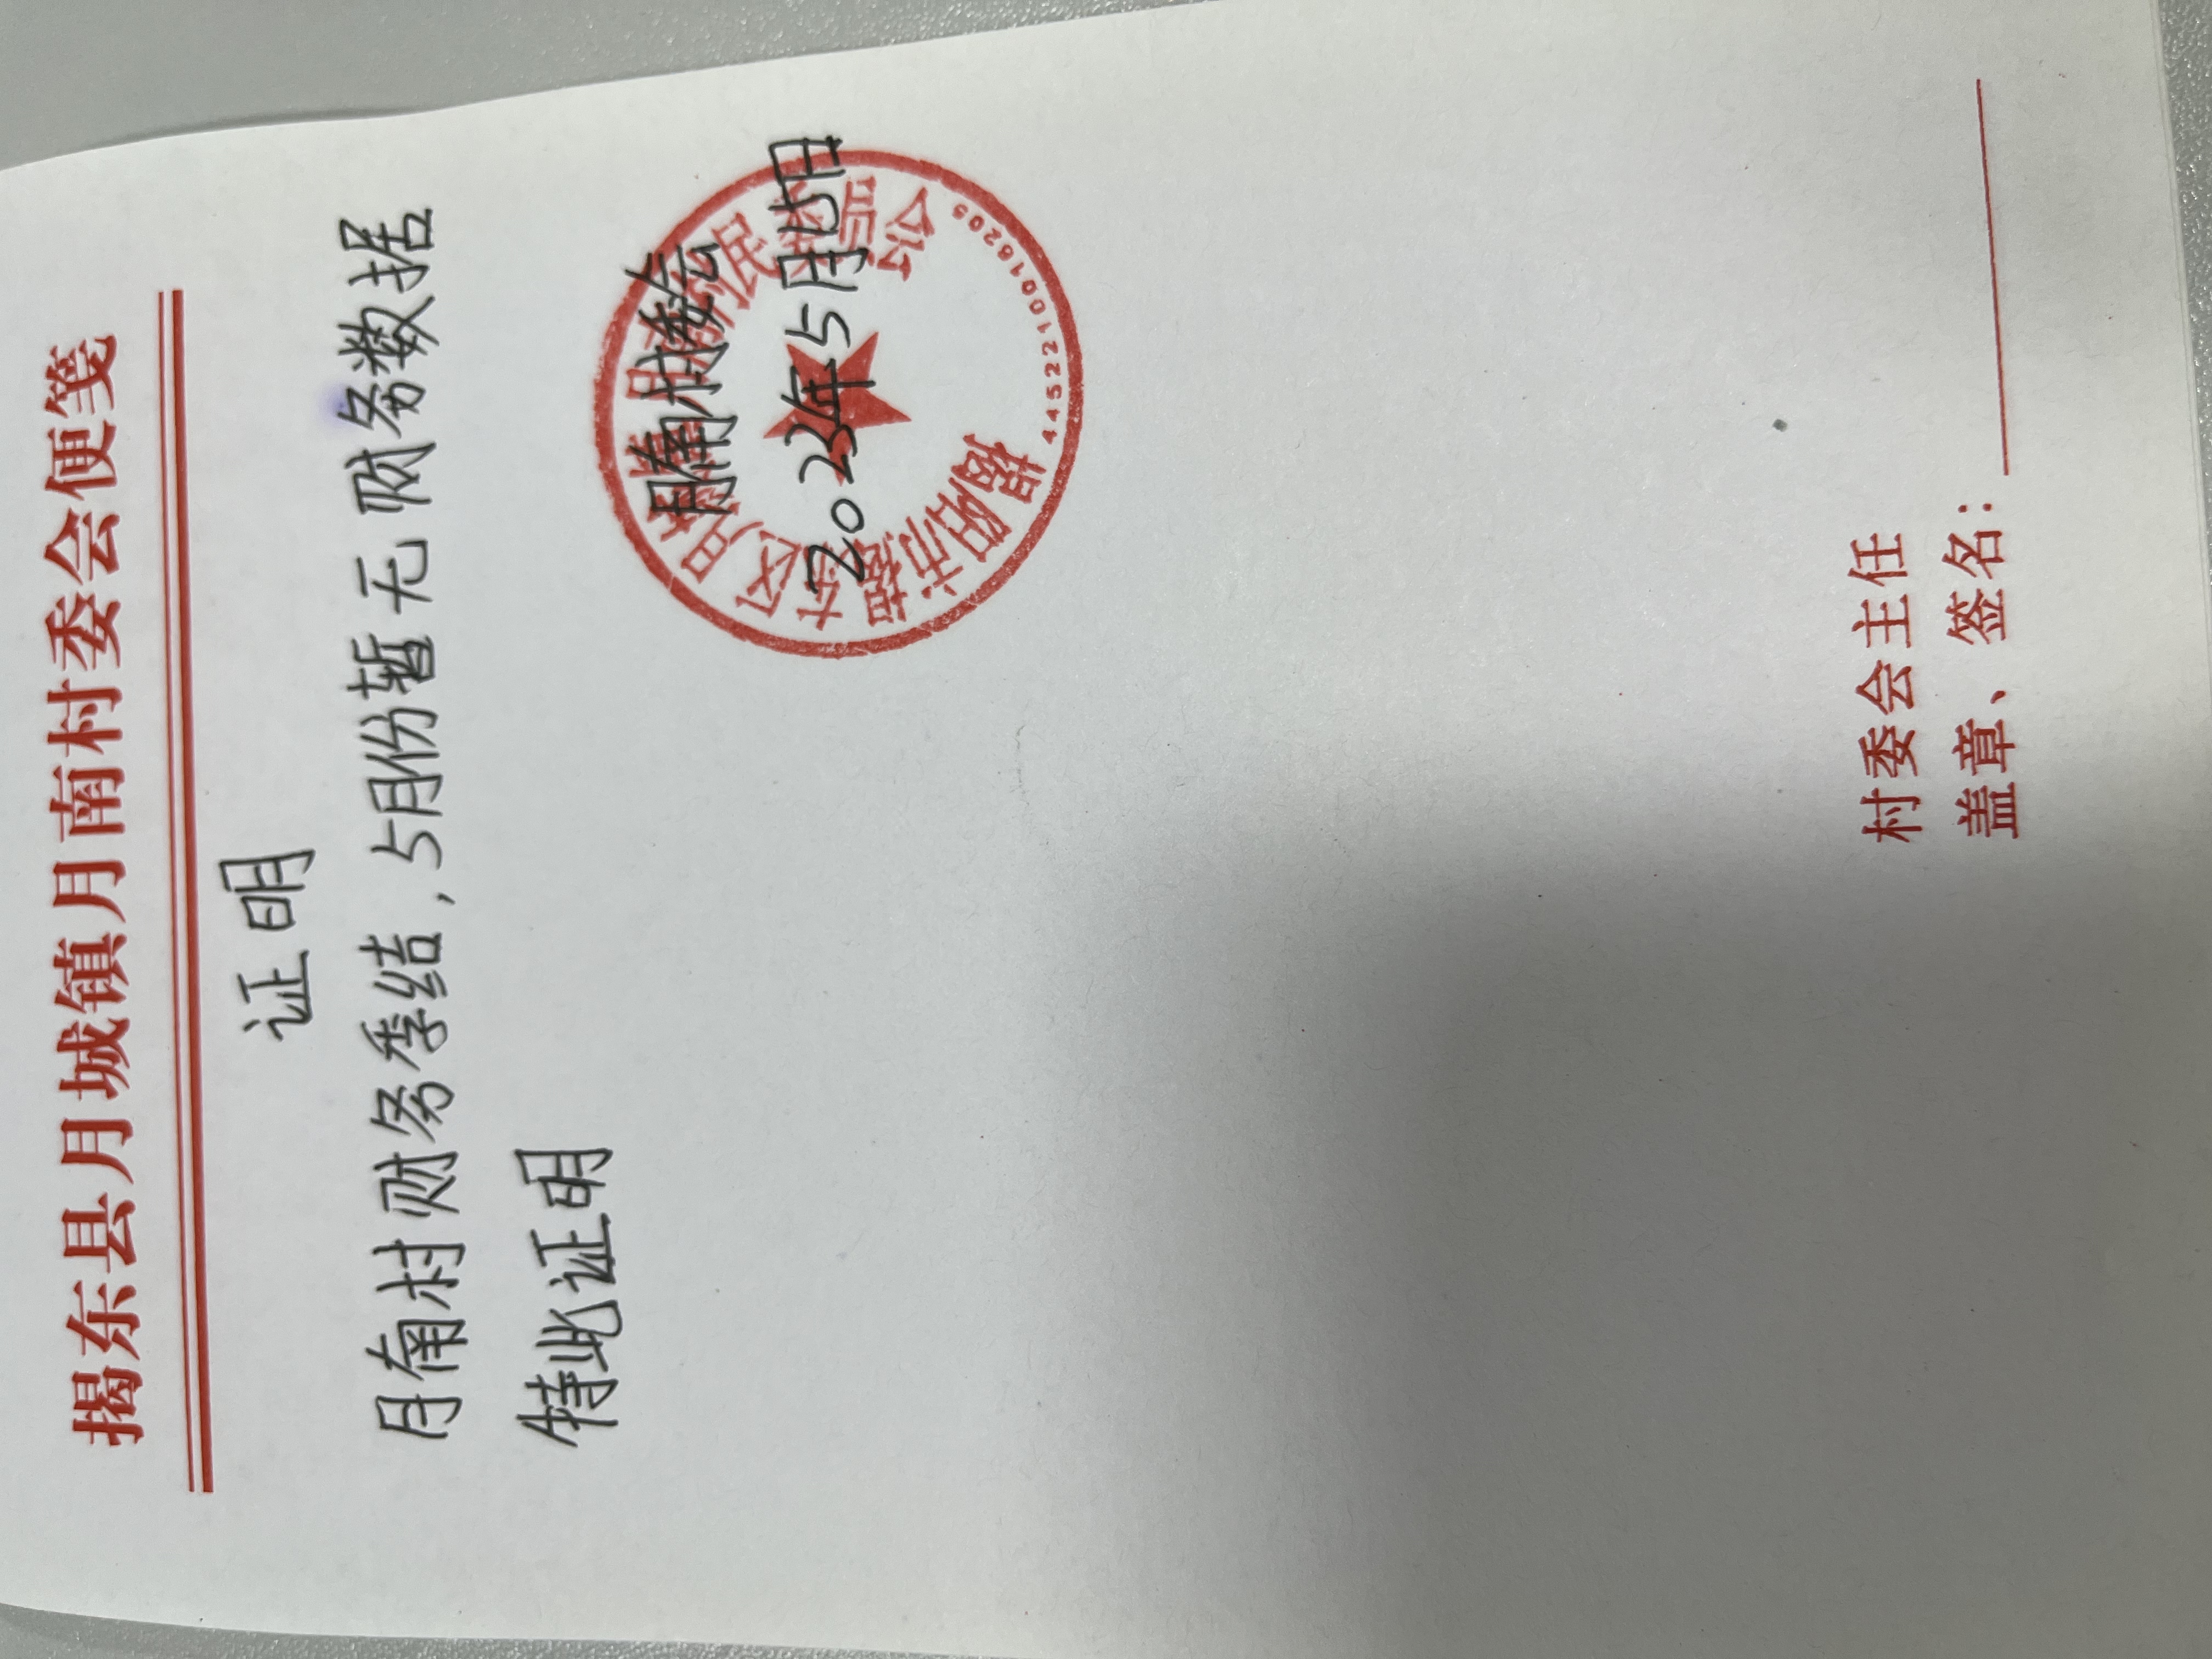 揭东县月城镇月南村委会便笺
证明
月南村财务季结,5月份暂无财务数据
特此证明
月南村委会
2023年5月15日
揭阳市揭东区月城镇月南村民委员会
4452210018205
村委会主任
盖章、签名: